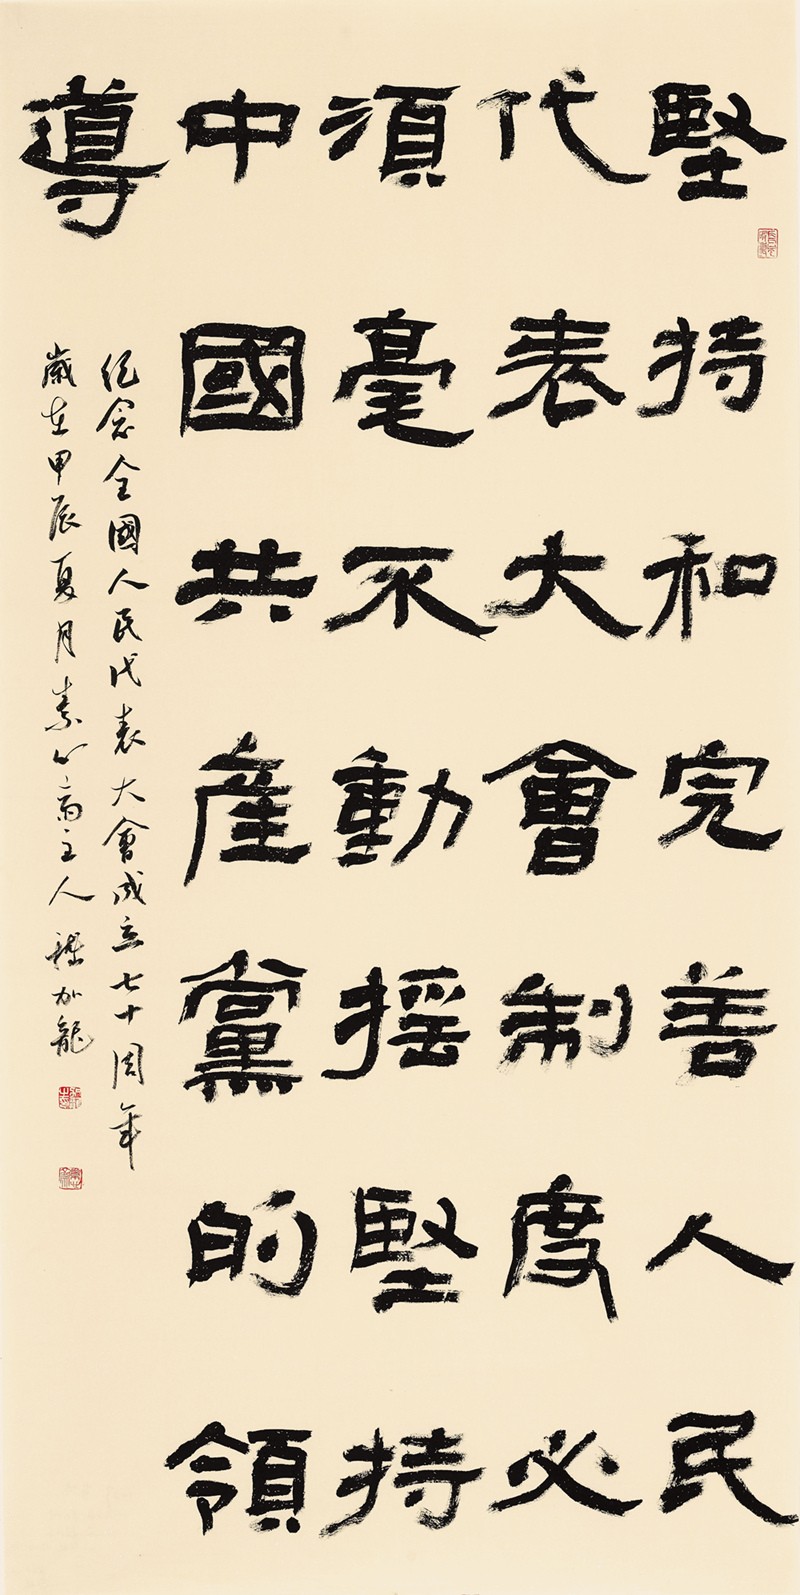 堅持和完善人民
代表大會制度必
須毫不動摇堅持
中國共產黨的領
導
纪念全國人民代表大會成立七十周年
歲在甲辰夏月素心斋主人嵇加龍